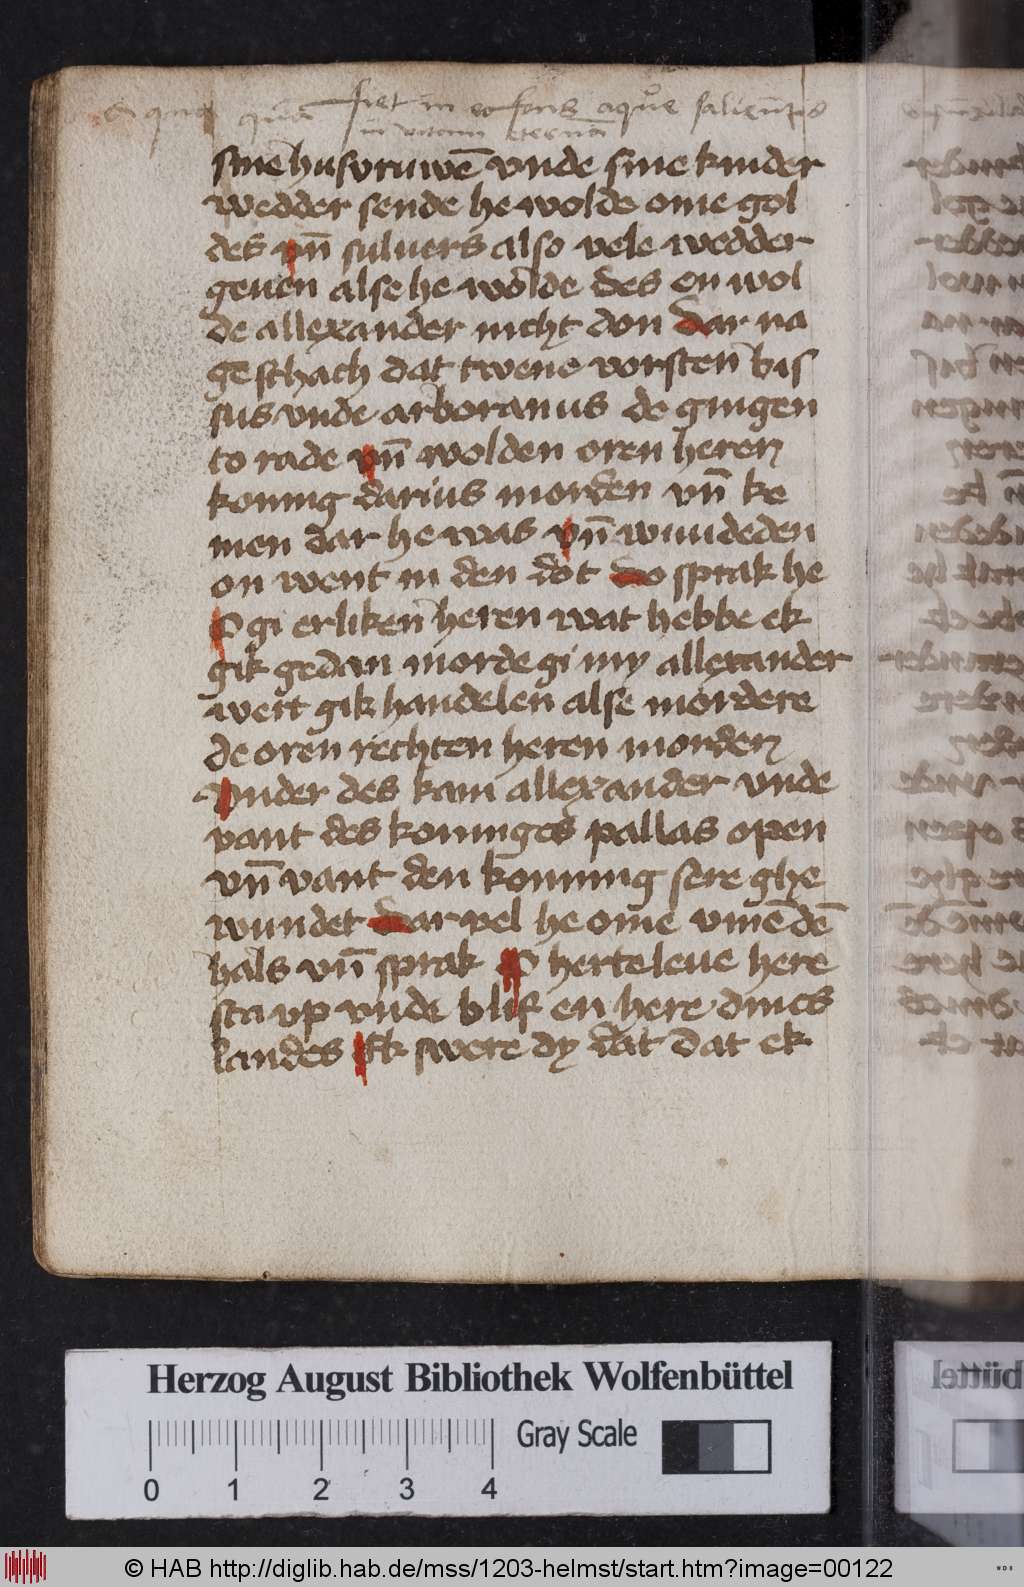 fiet in eo fons aque salientis
in vitam eternā
sine husvruwē vnde sine kinder
wedder sende he wolde ome gol
des vn̄ suluers also vele wedder
geuen alse he wolde des en wol
de allexander nicht don dar na
geschach dat twene vorsten bis
sus vnde arboranus de gingen
to rade vn̄ wolden oren heren
koning darius morden vn̄ ke
men dar he was vn̄ wundeden
on went in den dot do sprak he
O gi erliken heren wat hebbe ek
gik gedan morde gi my allexander
wert gik handelen alse mordere
de oren rechten heren morden
Vnder des kam allexander vnde
vant des koninges pallas open
vn̄ vant den konning sere ghe
wundet dar vel he ome vmē dē
hals vn̄ sprak O herteleue here
sta vp vnde blif en here dines
landes Ik swere dy dat dat ek
Herzog August Bibliothek Wolfenbüttel
Gray Scale
0 1 2 3 4
© HAB http://diglib.hab.de/mss/1203-helmst/start.htm?image=00122